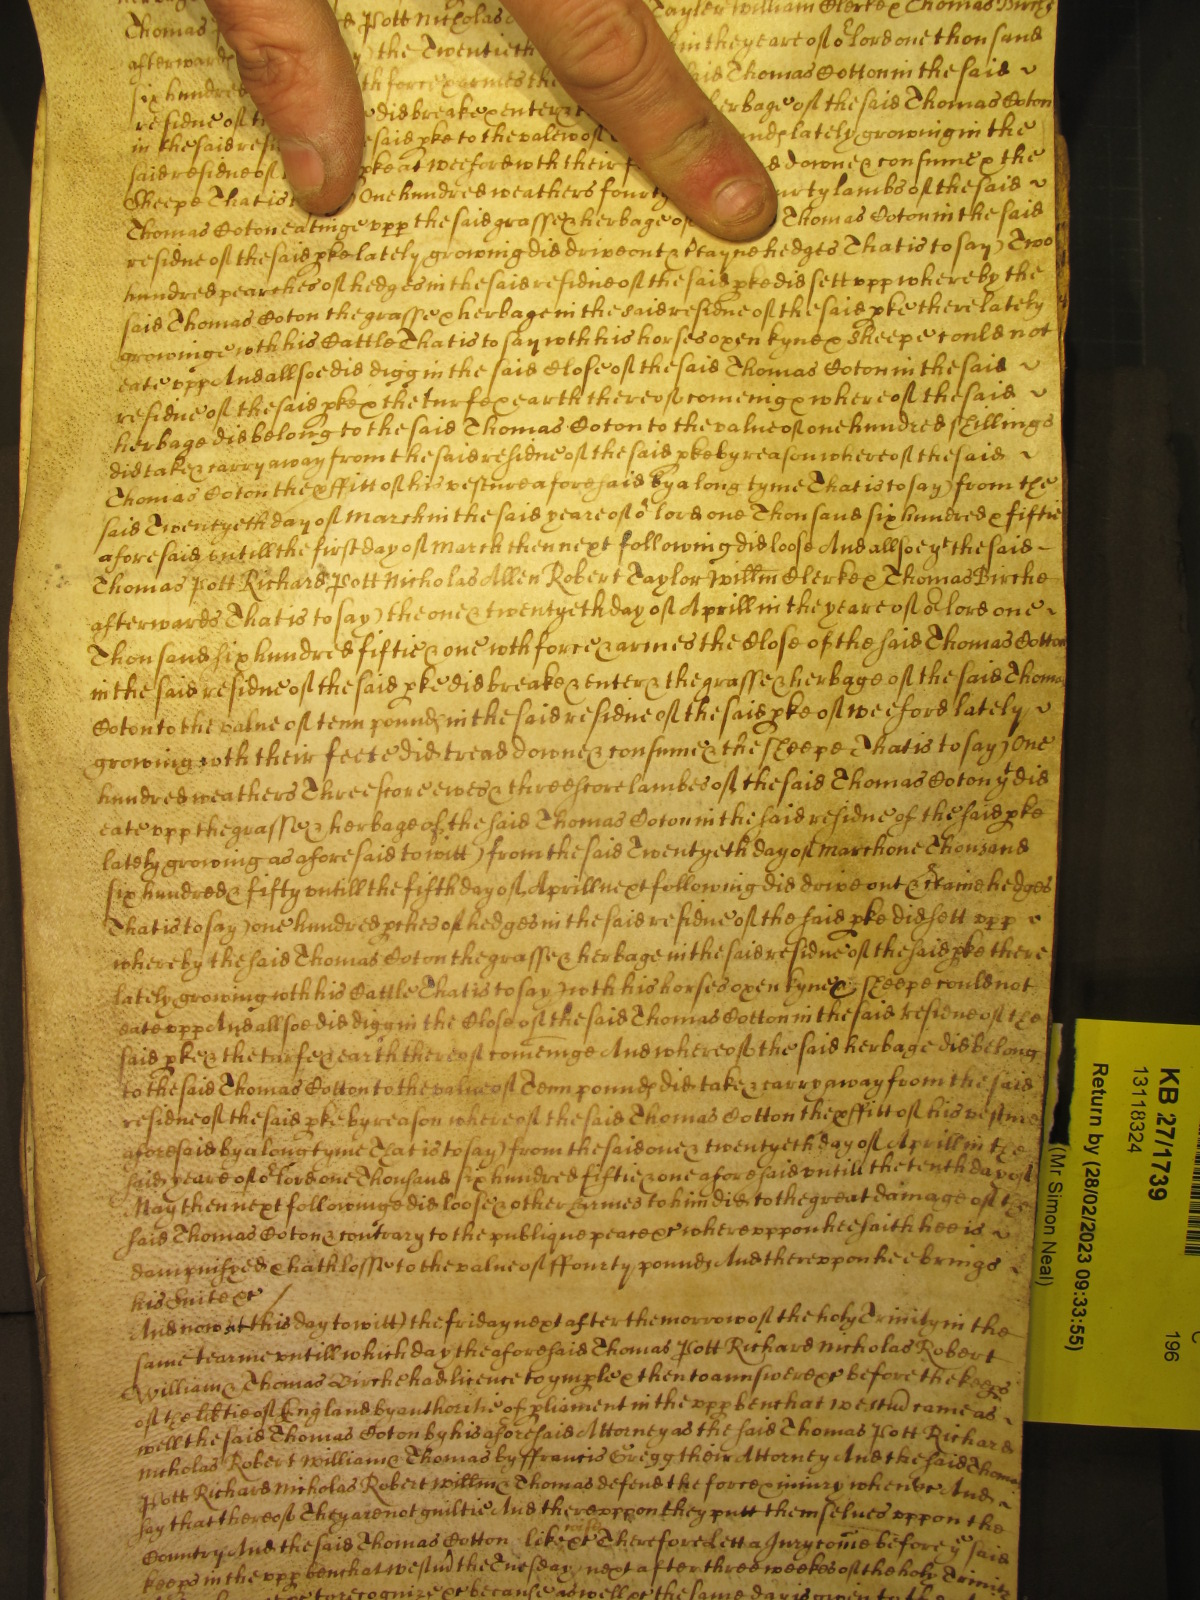 Thomas Pott Nicholas Taylor William Clerke & Thomas Birche
afterwards the Twentieth in the yeare of or lord one thousand
six hundred force & armes the said Thomas Cotton in the said
residue of the did breake & enter & herbage of the said Thomas Coton
in the said resi said pke to the valew of lately growing in the
said residue of pke at weeford wth their f downe & consume & the
Sheepe That is One hundred weathers fourty lambs of the said
Thomas Coton eatinge vpp the said grasse & herbage of Thomas Coton in the said
residue of the said pke lately growing did drive out & hedges That is to say) Two
hundred pearches of hedges in the said residue of the said pke did sett vpp whereby the
said Thomas Coton the grasse & herbage in the said residue of the said pke there lately
growinge wth his Cattle That is to say wth his horses oxen kyne & Sheepe could not
eate vpp And allsoe did digg in the said Close of the said Thomas Coton in the said
residue of the said pke & the turfe & earth thereof comenig & whereof the said
herbage did belong to the said Thomas Coton to the value of one hundred shillings
did take & carry away from the said residue of the said pke by reason whereof the said
Thomas Coton the pffitt of his pesture aforesaid by a long tyme That is to say) from the
said Twentyeth day of March in the said yeare of or lord one Thousand six hundred & fiftie
aforesaid untill the first day of March then next following did loose And allsoe yt the said
Thomas Pott Richard Pott Nicholas Allen Robert Taylor Willm Clerke & Thomas Birche
afterwards That is to say) the one & twentyeth day of Aprill in the yeare of or lord one
Thousand six hundred fiftie & one wth force & armes the Close of the said Thomas Cotton
in the said residue of the said pke did breake & enter & the grasse & herbage of the said Thomas
Coton to the value of tenn pounds in the said residue of the said pke of weeford lately
growing wth their feete did tread downe & consume & the sheepe That is to say) One
hundred weathers Threescore ewes & threescore lambes of the said Thomas Coton yt did
eate vpp the grasse & herbage of the said Thomas Coton in the said residue of the said pke
lately growing as aforesaid to witt) from the said Twentyeth day of March one Thousand
six hundred & fifty untill the fifth day of Aprill next following did drive out & staine hedges
That is to say) one hundred pches of hedges in the said residue of the said pke did sett vpp
whereby the said Thomas Coton the grasse & herbage in the said residue of the said pke there
lately growing wth his Cattle That is to say) wth his horses oxen kyne & sheepe could not
eate vpp And allsoe did digg in the Close of the said Thomas Cotton in the said residue of the
said pke & the turfe & earth thereof comeinge And whereof the said herbage did belong
to the said Thomas Cotton to the value of Tenn pounds did take & carry away from the said
residue of the said pke by reason whereof the said Thomas Cotton the pffitt of his pesture
aforesaid by a long tyme That is to say) from the said one & twentyeth day of Aprill in the
said yeare of or lord one Thousand six hundred fiftie & one aforesaid untill the tenth day of
May then next followinge did loose & other Harmes to him did to the great damage of the
said Thomas Coton & contrary to the publique peace &c whereuppon hee saith hee is
dampnifyed & hath losse to the value of ffourty pounds And thereuppon hee brings
his Suite &c
And now at this day to witt) the friday next after the morrow of the holy Trinity in the
same tearme untill which day the aforesaid Thomas Pott Richard Nicholas Robert
William & Thomas Birche had licence to ymple & then to aunswere &c before the keeps
of the libtie of England by authoritie of pliament in the vpp bench at westm came as
well the said Thomas Coton by his aforesaid Attorney as the said Thomas Pott Richard
Nicholas Robert William & Thomas by ffrancis Gregg their Attorney And the said Thomas
Pott Richard Nicholas Robert willm & Thomas defend the force & iniury when &c And
say that thereof They are not guiltie And thereuppon they putt themselues vppon the
Country And the said Thomas Cotton likewise &c Therefore Lett a Jury come before ye said
keeps in the vpp bench at westm the Tuesday next after three weekes of the holy Trinity
to recognize &c because as well &c the same day is given to the
KB 27/1739
13118324
Return by (28/02/2023 09:33:55)
(Mr Simon Neal)
196